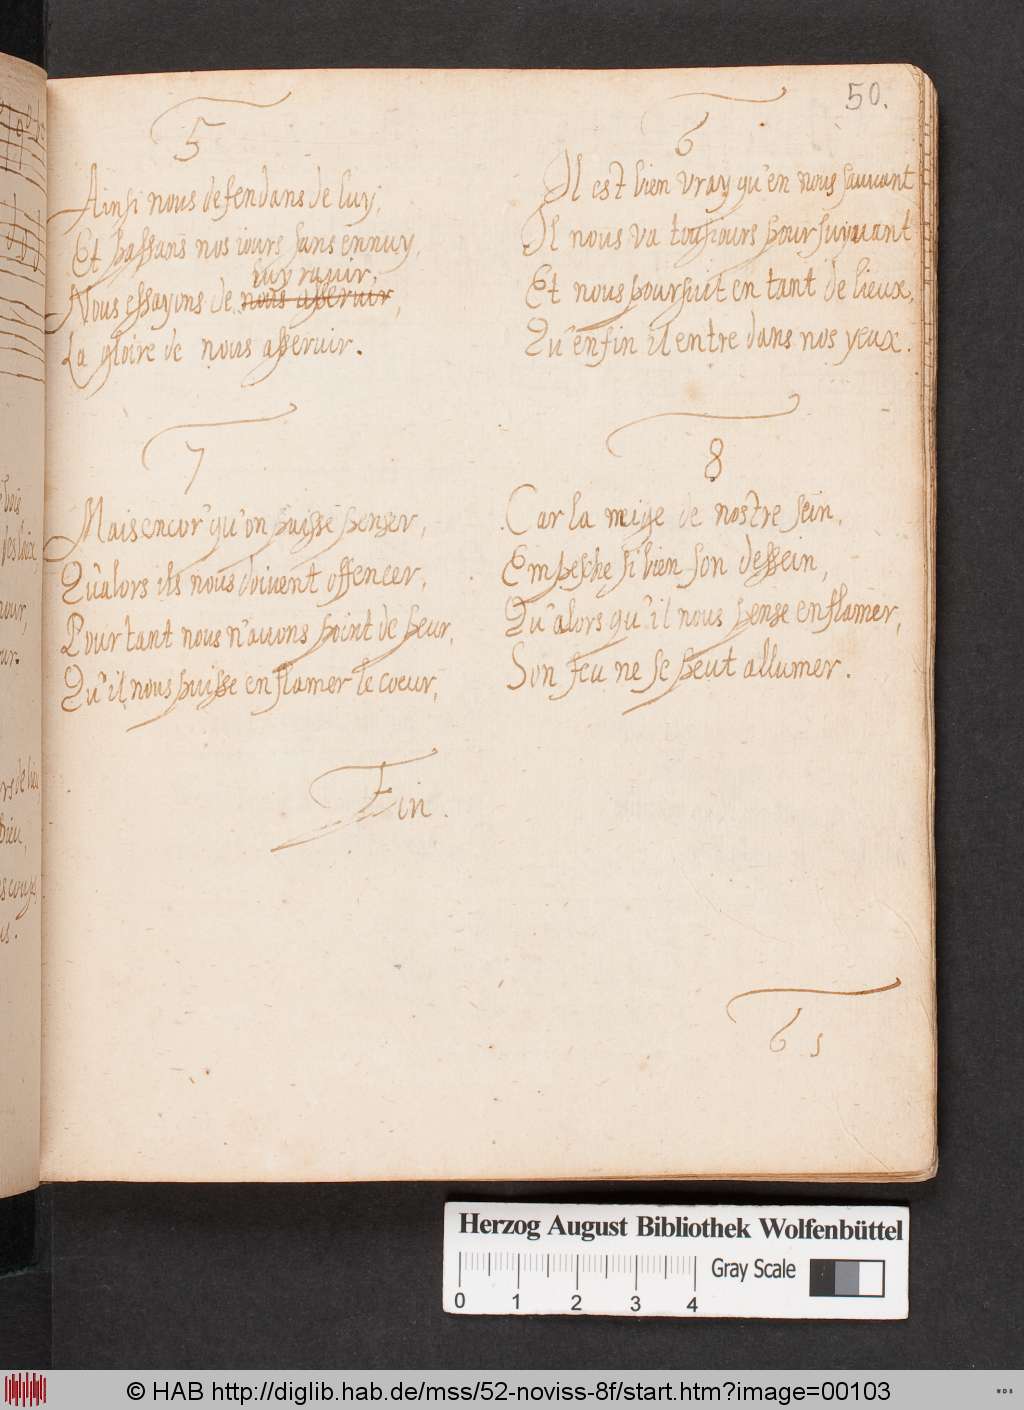 50.
5
Ainsi nous defendans de luy,
Et passans nos iours sans ennuy,
luy rauir,
Nous essayons de nous asseruir,
La gloire de nous asseruir.
6
Il est bien vray qu'en nous sauuant
Il nous va tousiours poursuyuant
Et nous poursuit en tant de lieux,
Qu'enfin il entre dans nos yeux.
7
Mais encor' qu'on puisse penser,
Qu'alors ils nous doivent offencer,
Pourtant nous n'auons point de peur,
Qu'il nous puisse enflamer le coeur,
8
Car la neige de nostre sein,
Empesche si bien son dessein,
Qu'alors qu'il nous pense enflamer,
Son feu ne se peut allumer.
Fin.
6 5
Herzog August Bibliothek Wolfenbüttel
Gray Scale
0 1 2 3 4
© HAB http://diglib.hab.de/mss/52-noviss-8f/start.htm?image=00103